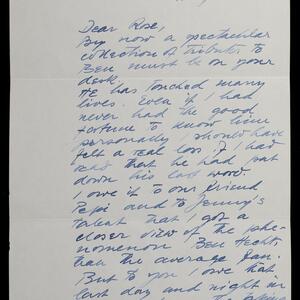 Dear Rose,
By now a spectacular
collection of tributes to
Ben must be on your
desk.
He has touched many
lives. Even if I had
never had the good
fortune to know him
personally I should have
felt a real loss if I had
read that he had put
down his last word.
I owe it to our friend
Pepi and to Jenny's
talent that I got a
closer view of the phe-
nomenon Ben Hecht,
than the average fan.
But to you I owe that
last day and night in